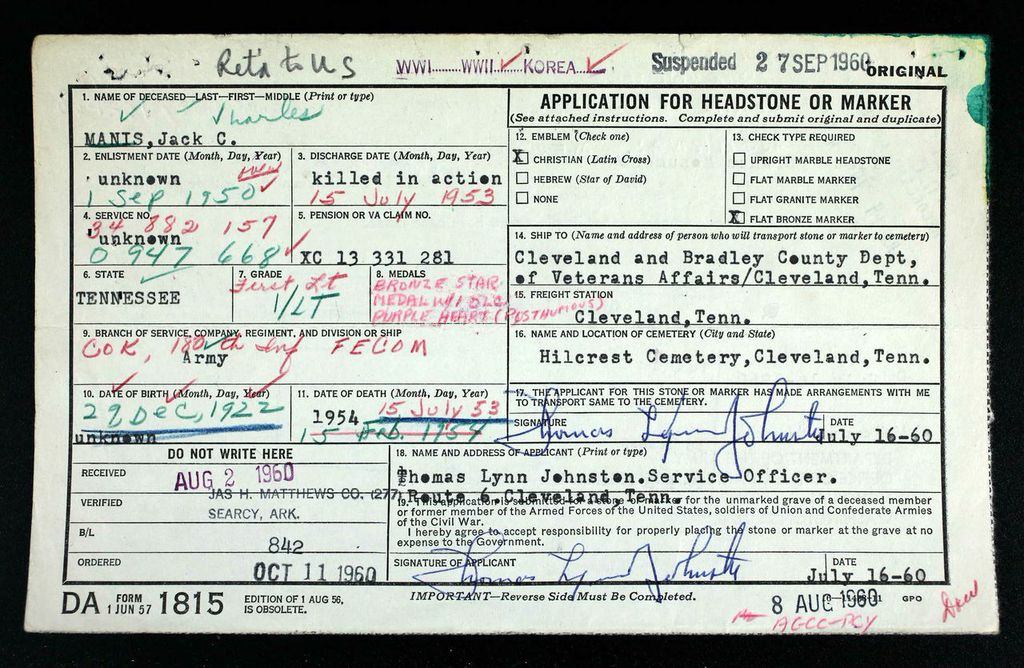 Retn to US
WWI......WWII...✓...KOREA...✓
Suspended 27 SEP 1960
ORIGINAL
1. NAME OF DECEASED—LAST—FIRST—MIDDLE (Print or type)
Charles
MANIS, Jack C.
2. ENLISTMENT DATE (Month, Day, Year)
unknown
1 Sep 1950
3. DISCHARGE DATE (Month, Day, Year)
killed in action
15 July 1953
4. SERVICE NO.
34 882 157
unknown
0 947 668
5. PENSION OR VA CLAIM NO.
XC 13 331 281
6. STATE
TENNESSEE
7. GRADE
First Lt
1/LT
8. MEDALS
BRONZE STAR
MEDAL W/1 OLC
PURPLE HEART (POSTHUMOUS)
9. BRANCH OF SERVICE, COMPANY, REGIMENT, AND DIVISION OR SHIP
Co K, 180th Inf FECOM
Army
10. DATE OF BIRTH (Month, Day, Year)
29 Dec, 1922
unknown
11. DATE OF DEATH (Month, Day, Year)
1954 15 July 53
15 Feb. 1954
APPLICATION FOR HEADSTONE OR MARKER
(See attached instructions. Complete and submit original and duplicate)
12. EMBLEM (Check one)
X CHRISTIAN (Latin Cross)
HEBREW (Star of David)
NONE
13. CHECK TYPE REQUIRED
UPRIGHT MARBLE HEADSTONE
FLAT MARBLE MARKER
FLAT GRANITE MARKER
X FLAT BRONZE MARKER
14. SHIP TO (Name and address of person who will transport stone or marker to cemetery)
Cleveland and Bradley County Dept,
of Veterans Affairs/Cleveland, Tenn.
15. FREIGHT STATION
Cleveland, Tenn.
16. NAME AND LOCATION OF CEMETERY (City and State)
Hilcrest Cemetery, Cleveland, Tenn.
17. THE APPLICANT FOR THIS STONE OR MARKER HAS MADE ARRANGEMENTS WITH ME
TO TRANSPORT SAME TO THE CEMETERY.
SIGNATURE
Thomas Lynn Johnston
DATE
July 16-60
DO NOT WRITE HERE
RECEIVED
AUG 2 1960
VERIFIED
JAS H. MATTHEWS CO. (277)
SEARCY, ARK.
B/L
842
ORDERED
OCT 11 1960
18. NAME AND ADDRESS OF APPLICANT (Print or type)
Thomas Lynn Johnston.Service Officer.
Route 6.Cleveland, Tenn.
19. This application is submitted for a stone or marker for the unmarked grave of a deceased member
or former member of the Armed Forces of the United States, soldiers of Union and Confederate Armies
of the Civil War.
I hereby agree to accept responsibility for properly placing the stone or marker at the grave at no
expense to the Government.
SIGNATURE OF APPLICANT
Thomas Lynn Johnston
DATE
July 16-60
DA FORM 1 JUN 57 1815
EDITION OF 1 AUG 56,
IS OBSOLETE.
IMPORTANT—Reverse Side Must Be Completed.
8 AUG 1960
GPO
AGCC-PCY